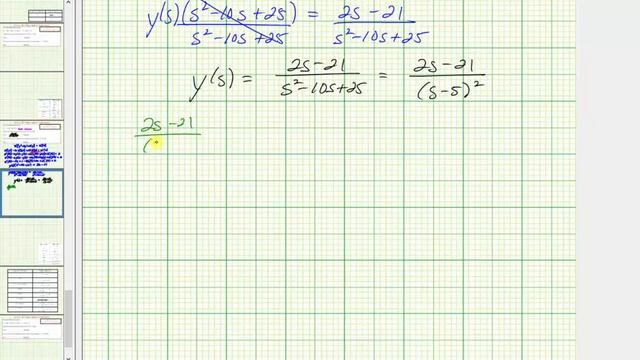 y(s)(s²-10s+25) / s²-10s+25 = 2s-21 / s²-10s+25
y(s) = 2s-21 / s²-10s+25 = 2s-21 / (s-5)²
2s-21 / (